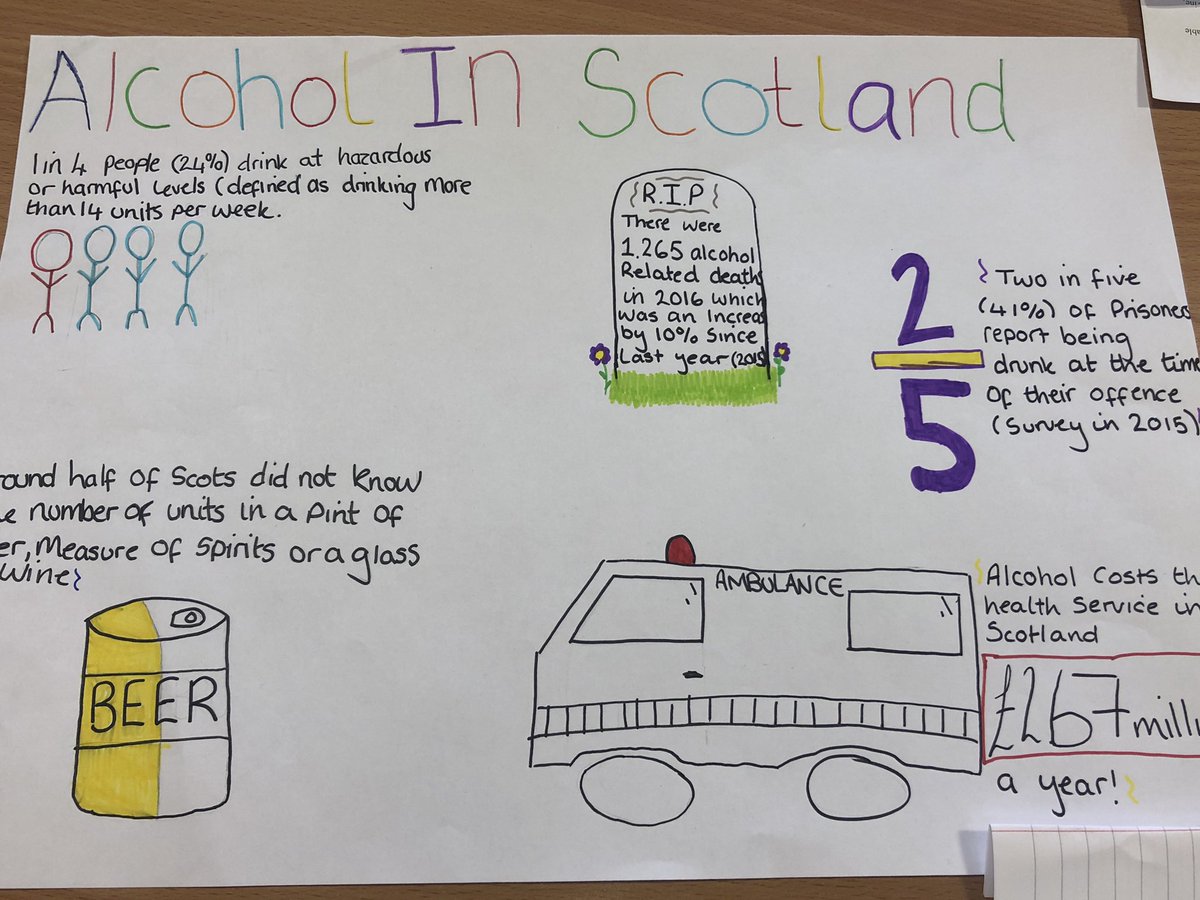 Alcohol In Scotland
1 in 4 People (24%) drink at hazardous
or harmful Levels (defined as drinking More
than 14 units per week.
R.I.P
There were
1.265 alcohol
Related death
in 2016 which
was an Increas
by 10% Since
Last year (2015)
2
5
Two in five
(41%) of Prisoners
report being
drunk at the time
Of their offence
(Survey in 2015)
round half of Scots did not know
e number of units in a Pint of
er, Measure of Spirits or a glass
Wine
BEER
AMBULANCE
Alcohol Costs th
health Service in
Scotland
£267 milli
a year!